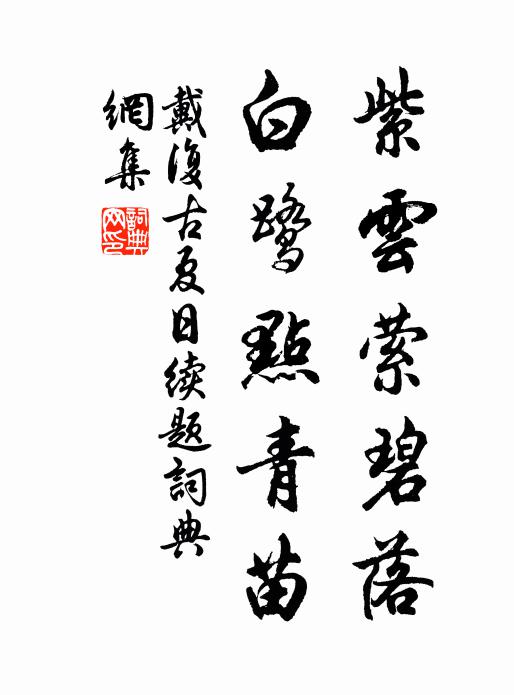 紫雲萦碧落
白鹭點青苗
戴復古夏日续题詞典
網集
詞典网印